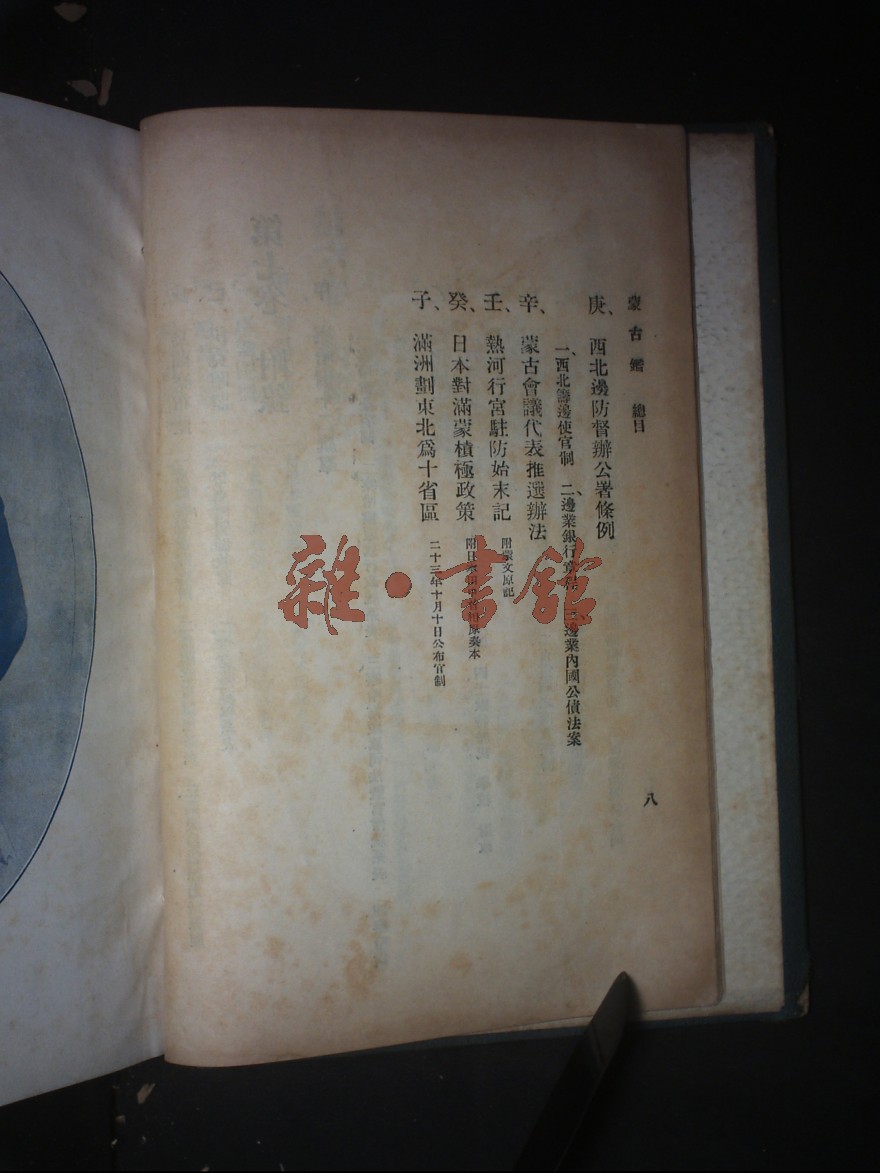 蒙古鑑 總目
庚、西北邊防督辦公署條例
一、西北籌邊使官制 二、邊業銀行章程 三、邊業內國公債法案
辛、蒙古會議代表推選辦法
壬、熱河行宮駐防始末記 附蒙文原記
癸、日本對滿蒙積極政策 附日 原奏本
子、滿洲劃東北爲十省區 二十三年十月十日公布官制
八
雜·書館